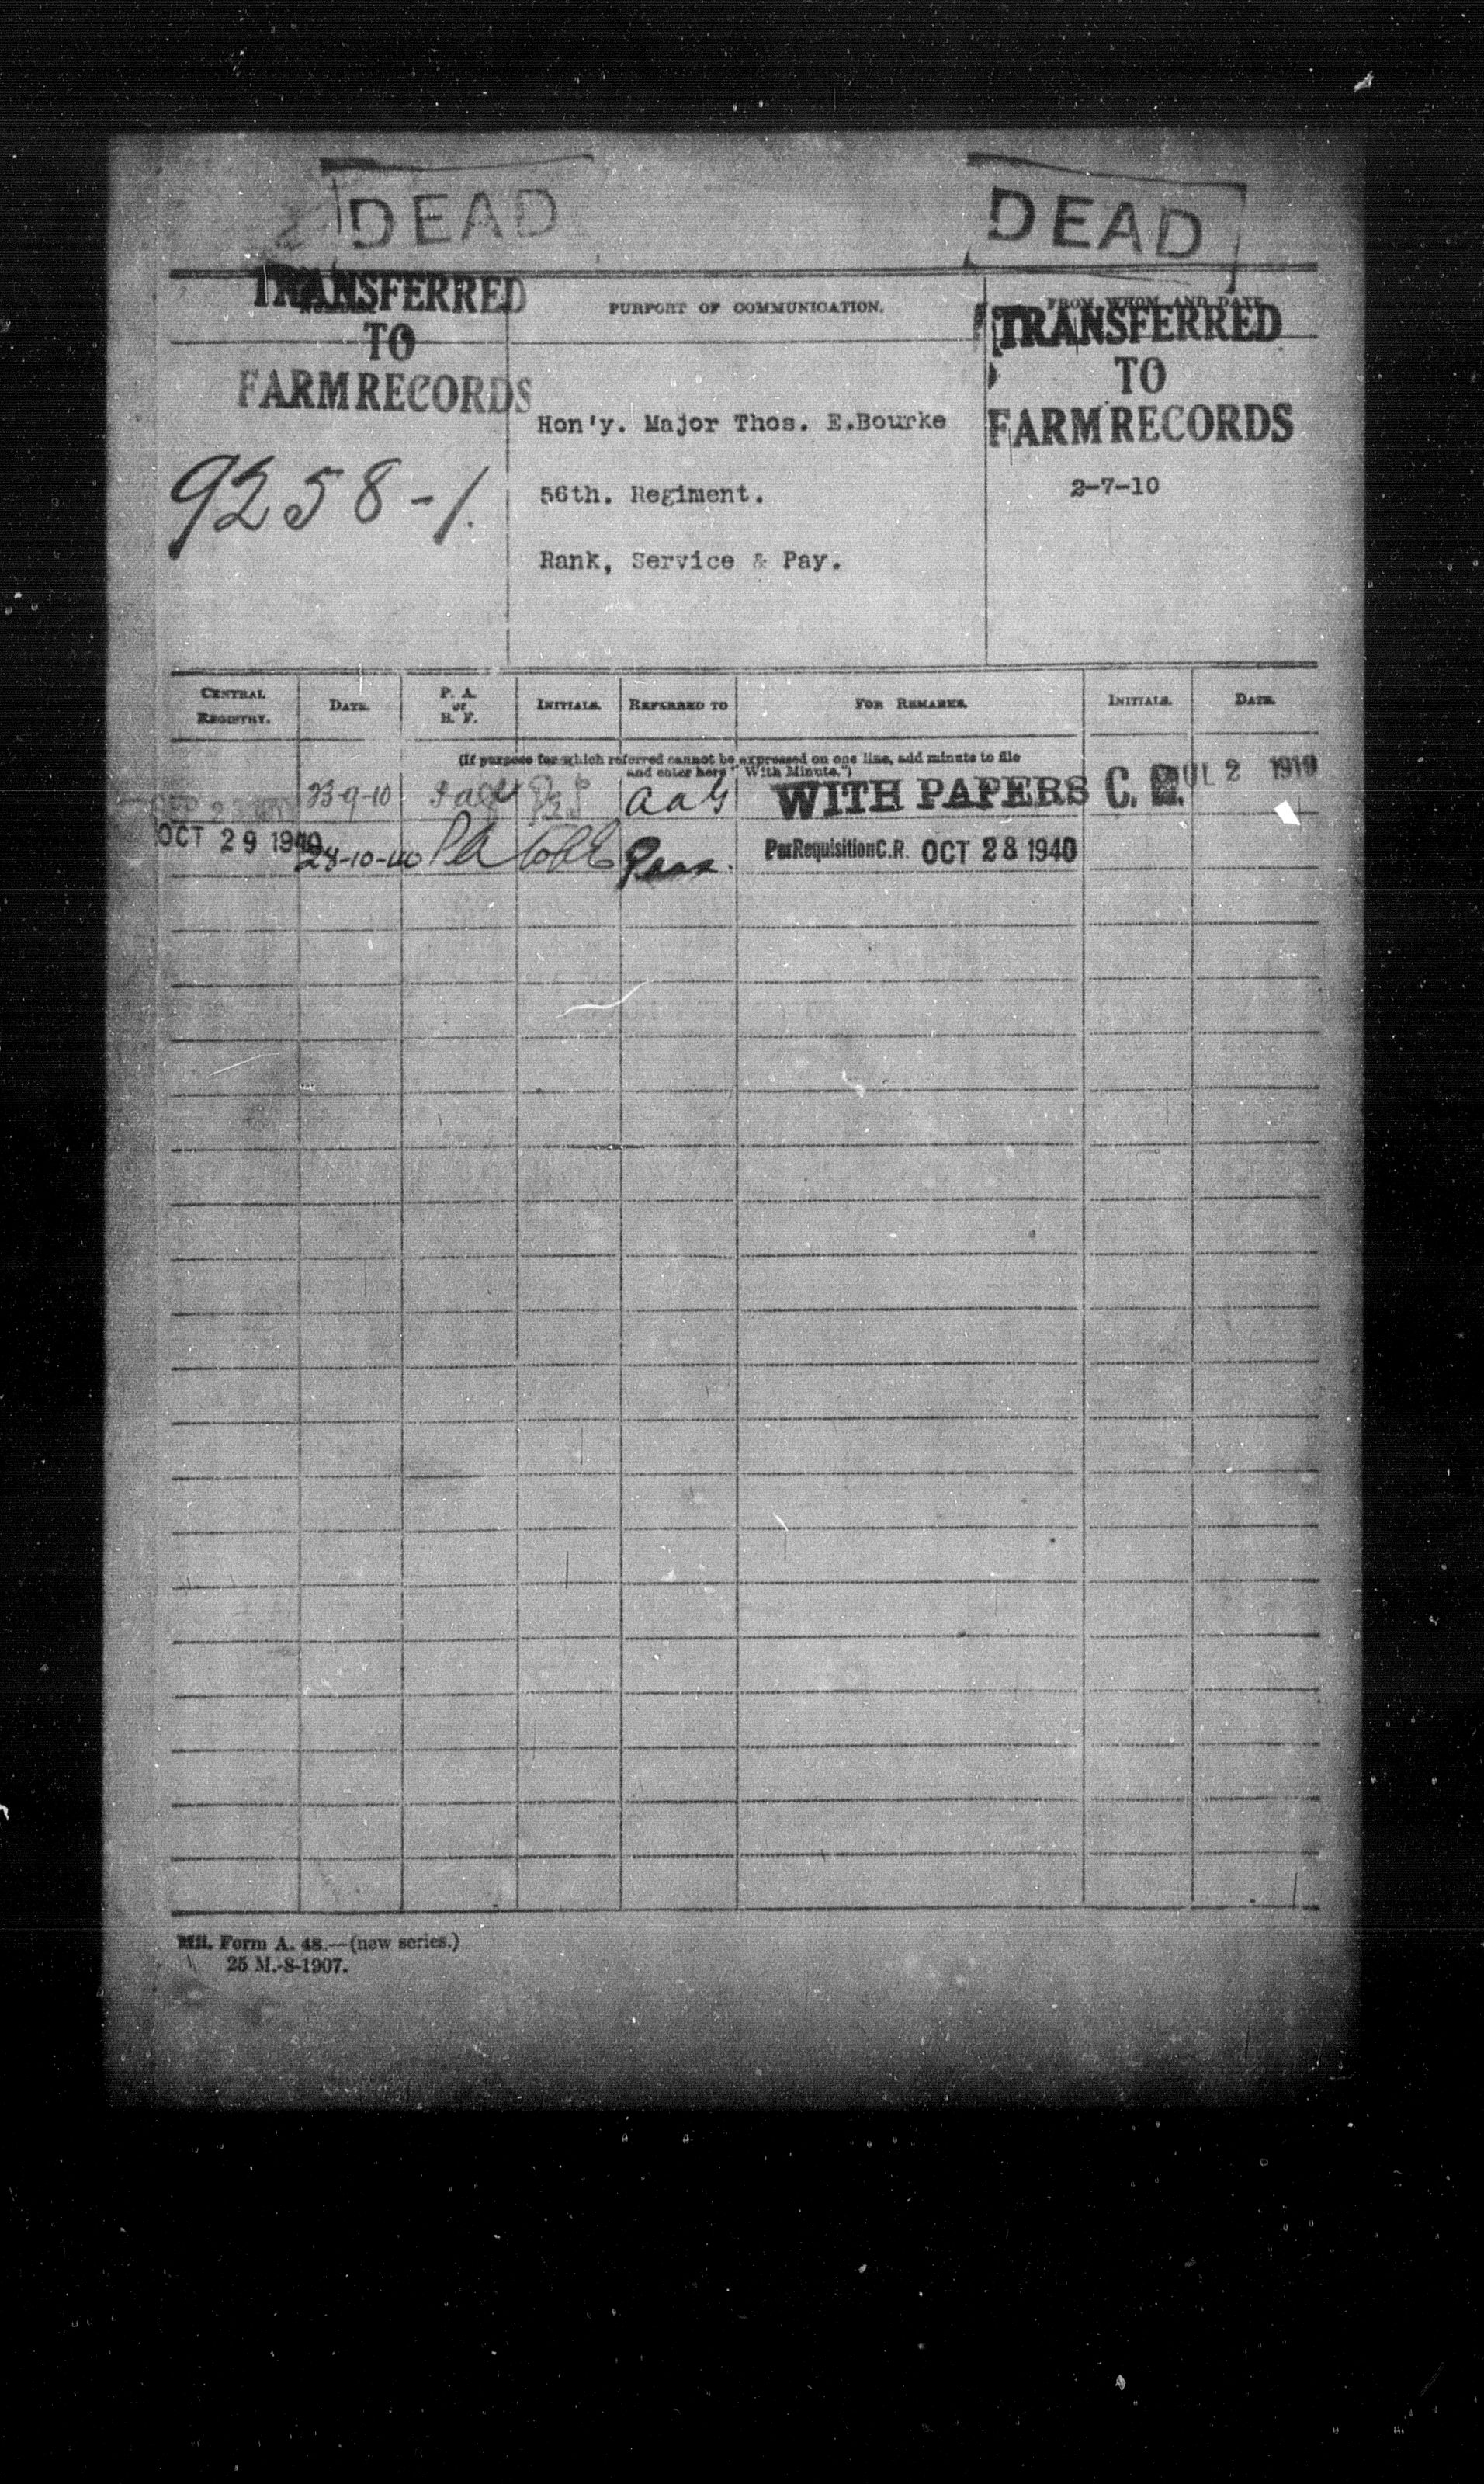 DEAD
DEAD
TRANSFERRED
TO
FARM RECORDS
PURPORT OF COMMUNICATION.
FROM WHOM AND DATE
TRANSFERRED
TO
FARM RECORDS
9258-1.
Hon'y. Major Thos. E.Bourke
56th. Regiment.
Rank, Service & Pay.
2-7-10
CENTRAL REGISTRY.
DATE.
P. A. or B. F.
INITIALS.
REFERRED TO
FOR REMARKS.
INITIALS.
DATE.
(If purpose for which referred cannot be expressed on one line, add minute to file
and enter here "With Minute.")
23-9-10 aag WITH PAPERS C. 2 1910
OCT 29 1940 28-10-40 PA Per Requisition C.R. OCT 28 1940
Mil. Form A. 48.—(new series.)
25 M.-8-1907.